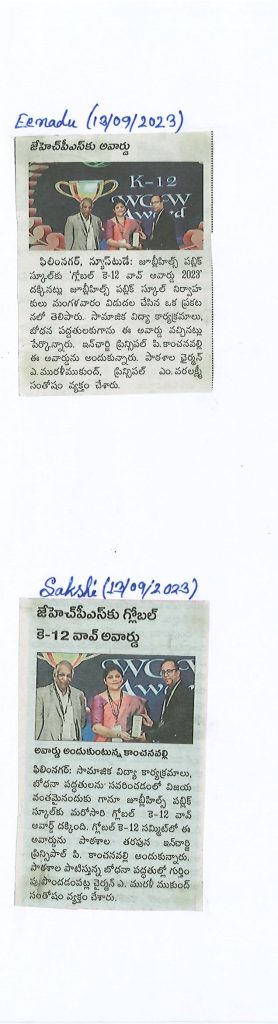 Eenadu (13/09/2023)
జేహెచ్‌పీఎస్‌కు అవార్డు
K-12
WOW
Award
ఫిలింనగర్, న్యూస్‌టుడే: జూబ్లీహిల్స్ పబ్లిక్
స్కూల్‌కు 'గ్లోబల్ కె-12 వావ్ అవార్డు 2023'
దక్కినట్లు జూబ్లీహిల్స్ పబ్లిక్ స్కూల్ నిర్వాహ
కులు మంగళవారం విడుదల చేసిన ఒక ప్రకట
నలో తెలిపారు. సామాజిక విద్యా కార్యక్రమాలు,
బోధన పద్ధతులకుగాను ఈ అవార్డు వచ్చినట్లు
పేర్కొన్నారు. ఇన్‌ఛార్జి ప్రిన్సిపల్ పి.కాంచనవల్లి
ఈ అవార్డును అందుకున్నారు. పాఠశాల ఛైర్మన్
ఎ.మురళీముకుంద్, ప్రిన్సిపల్ ఎం.వరలక్ష్మి
సంతోషం వ్యక్తం చేశారు.
Sakshi (13/09/2023)
జేహెచ్‌పీఎస్‌కు గ్లోబల్
కె-12 వావ్ అవార్డు
WOW
Award
అవార్డు అందుకుంటున్న కాంచనవల్లి
ఫిలింనగర్: సామాజిక విద్యా కార్యక్రమాలు,
బోధనా పద్ధతులను సవరించడంలో విజయ
వంతమైనందుకు గానూ జూబ్లీహిల్స్ పబ్లిక్
స్కూల్‌కు మరోసారి గ్లోబల్ కె-12 వావ్
అవార్డ్ దక్కింది. గ్లోబల్ కె-12 సమ్మిట్‌లో ఈ
అవార్డును పాఠశాల తరపున ఇన్‌చార్జి
ప్రిన్సిపాల్ పి. కాంచనవల్లి అందుకున్నారు.
పాఠశాల పాటిస్తున్న బోధనా పద్ధతుల్లో గుర్తిం
పు పొందడంపట్ల చైర్మన్ ఎ. మురళీ ముకుంద్
సంతోషం వ్యక్తం చేశారు.